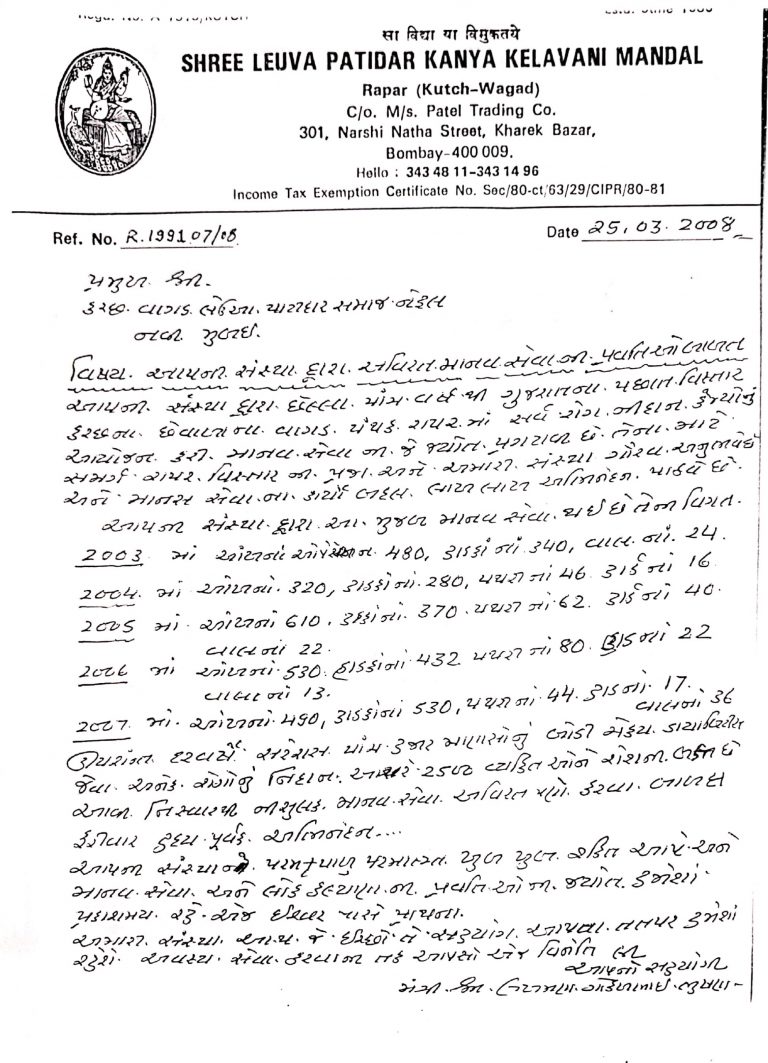 સા વિદ્યા યા વિમુક્તયે
SHREE LEUVA PATIDAR KANYA KELAVANI MANDAL
Rapar (Kutch-Wagad)
C/o. M/s. Patel Trading Co.
301, Narshi Natha Street, Kharek Bazar,
Bombay-400 009.
Hello : 343 48 11-343 14 96
Income Tax Exemption Certificate No. Sec/80-ct/63/29/CIPR/80-81
Ref. No. R.1991 07/08 Date 25.03.2008
પ્રમુખ શ્રી.
કચ્છ વાગડ લેઉઆ પાટીદાર સમાજ
નવી મુંબઈ.
વિષય. આપની સંસ્થા દ્વારા અવિરત માનવ સેવાની પ્રવૃતિઓ બાબત
આપની સંસ્થા દ્વારા છેલ્લા પાંચ વર્ષ થી ગુજરાતના પછાત વિસ્તાર
કચ્છના છેવાડાના વાગડ પંથક રાપર માં સર્વ રોગ નીદાન કેમ્પોનું
આયોજન કરી માનવ સેવા ની જે જ્યોત પ્રગટાવી છે. તેના માટે
સમગ્ર રાપર વિસ્તાર ની પ્રજા અને અમારી સંસ્થા ગૌરવ અનુભવે છે
અને માનવ સેવા ના કાર્યો બદલ લાખ લાખ અભિનંદન પાઠવે છે.
આપની સંસ્થા દ્વારા આ મુજબ માનવ સેવા થઈ છે તેની વિગત.
2003 માં આંખનાં ઓપરેશન 480, હાડકાંનાં 340, વાલ નાં 24
2004 માં આંખનાં 320, હાડકાંનાં 280, પથરીનાં 46 હાર્ડ નાં 16
2005 માં આંખનાં 610, હાડકાંનાં 370 પથરી નાં 62 હાર્ડ નાં 40
વાલનાં 22
2006 માં આંખનાં 530 હાડકાંનાં 432 પથરી નાં 80 હાડનાં 22
વાલનાં 13
2007 માં આંખનાં 490, હાડકાંનાં 530, પથરીનાં 44 હાડનાં 17 વાલનાં 36
ઉપરાંત દરવર્ષે સરેરાશ પાંચ હજાર માણસોનું બોડી ચેકપ ડાયાબિટીસ
જેવા અનેક રોગોનું નિદાન આશરે 2500 વ્યક્તિ ઓને રોશની છે
આવી નિસ્વાર્થી નીશુલ્ક માનવ સેવા અવિરત પણે કરવા બાબત
ફરીવાર હૃદય પૂર્વક અભિનંદન....
આપની સંસ્થાને પરમકૃપાળુ પરમાત્મા ખુબ ખુબ શક્તિ આપે અને
માનવ સેવા અને લોક કલ્યાણ ની પ્રવૃતિ ઓની જ્યોત હંમેશાં
પ્રકાશમય રહે એજ ઈશ્વર પાસે પ્રાર્થના.
અમારી સંસ્થા આપ જે ઈચ્છો તે સહયોગ આપવા તત્પર હંમેશાં
રહેશે. અવશ્ય સેવા કરવાની તક આપશો એજ વિનંતિ
આપનો સહયોગી
મંત્રી શ્રી.